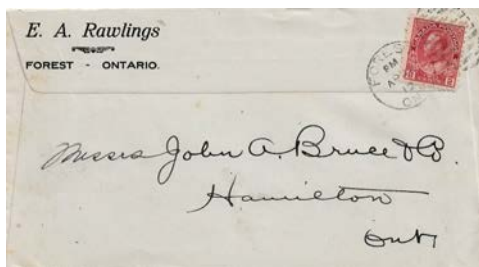 E. A. Rawlings
FOREST - ONTARIO.
FOREST
PM
Messrs John A. Bruce & Co.
Hamilton
Ont